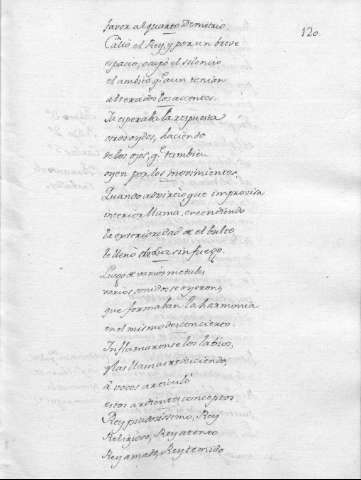 120
favor al quarto Demetrio.
Calló el Rey, y por un breve
espacio, ocupó el silencio
el ambito, q.e aun tenian
alterado los acentos.
Yo esperaba la respuesta
de los ojos, q.e tambien
oyen por los movimientos.
Quando advierto que improvisa
interior llama, encendiendo
la exterioridad de el bulto
le llenó de luz sin fuego.
Luego de varios metales
varios sonidos se oyeron,
que formaban la harmonia
en el mismo desconcierto.
Inflamaronse los labios,
y las llamas reduciendo,
á voces articuló
estos ardientes conceptos
Rey prudentissimo, Rey
Religioso, Rey atento
Rey amado, Rey temido